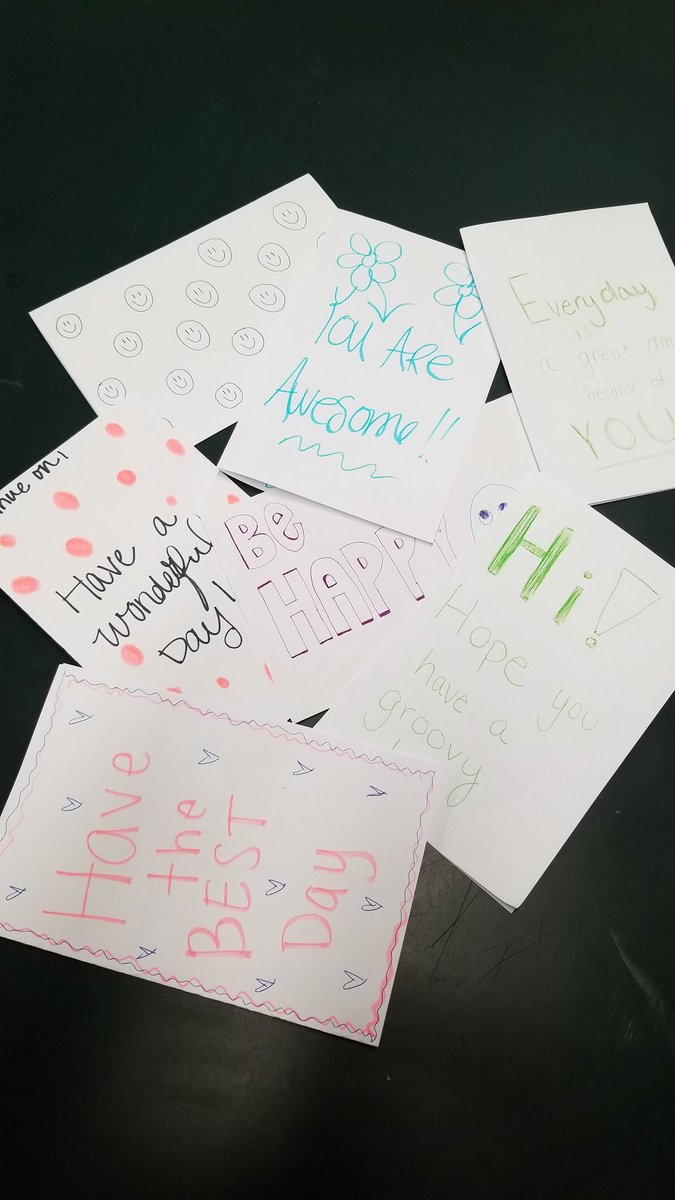 You Are
Awesome!!
Everyday
is
a great day
because of
YOU
on!
Have a
wonderful
Day!
Be
HAPPY
Hi!
Hope you
have a
groovy
Have
the
BEST
Day